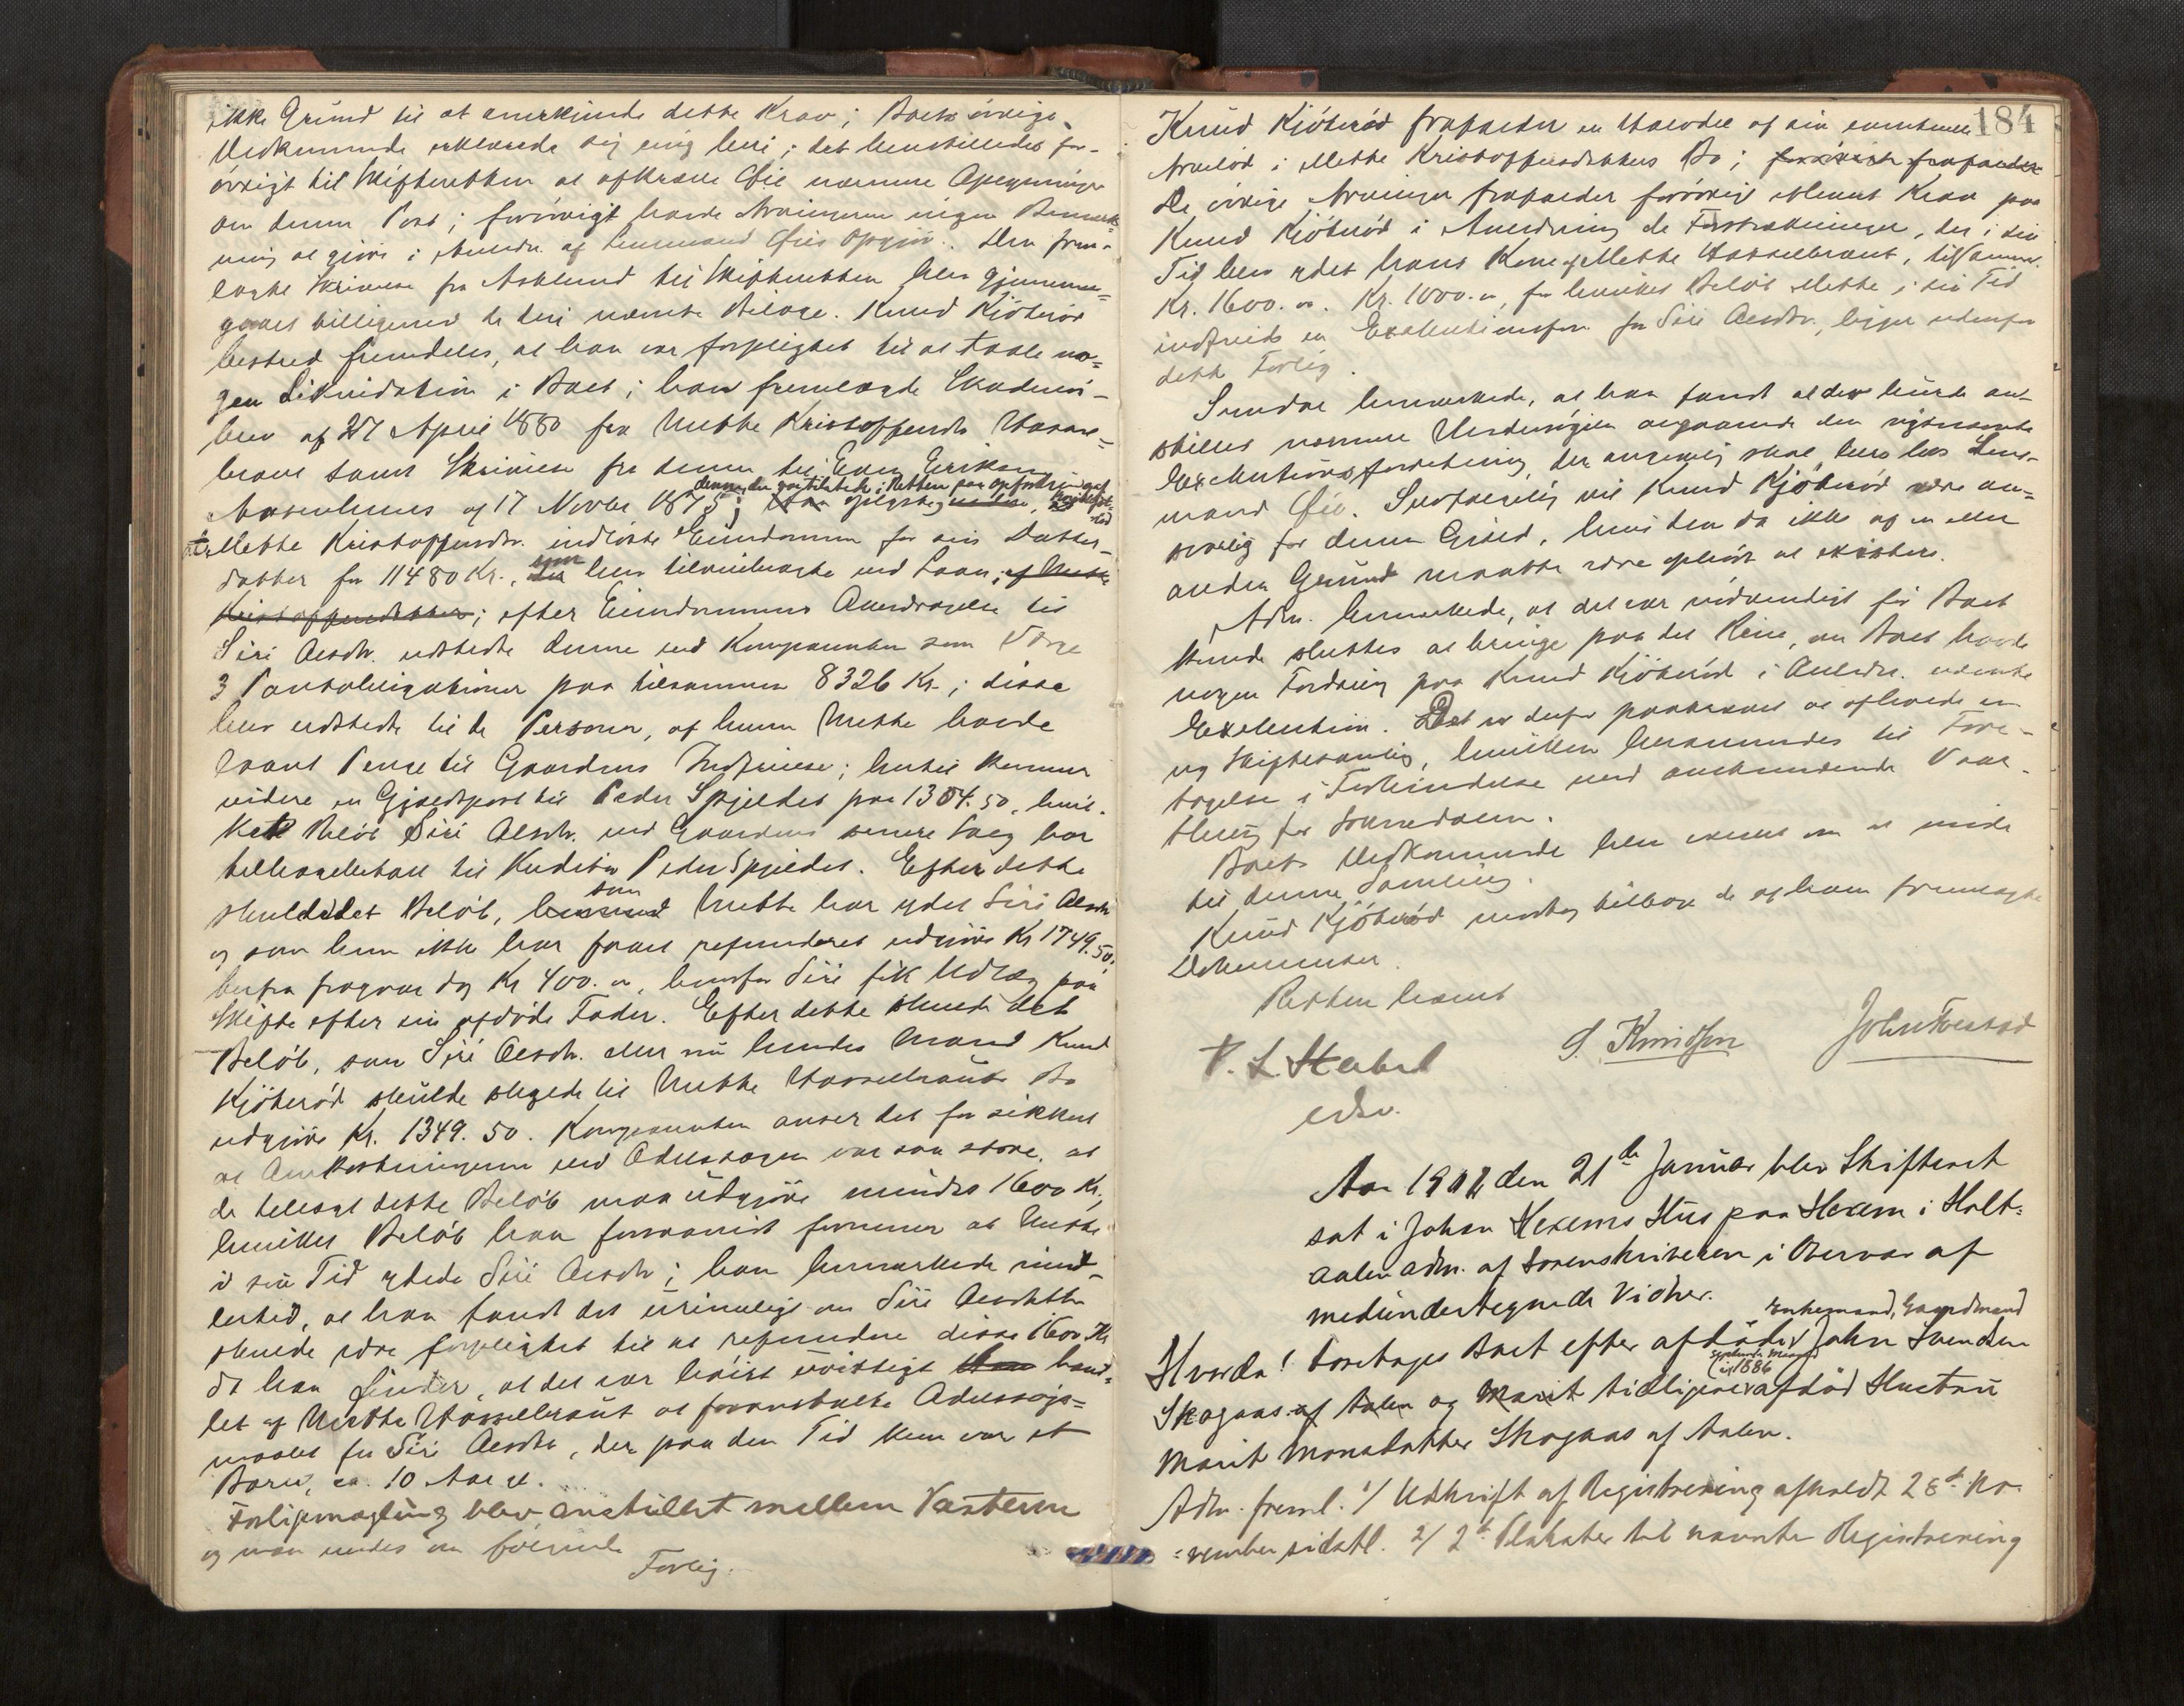 ikke Grund til at anerkjende dette Krav; Boets øvrige
Vedkommende erklærede sig enig heri; det henstilledes for-
øvrigt til Skifteretten at afkræve Øie nærmere Opgjør
om denne Post; forøvrigt havde Arvingerne ingen Bemærk-
ning at gjøre i Anledn. af Lensmand Øies Opgjør. Den frem-
lagte Skrivelse fra Asklund til Skifteretten blev gjennem-
gaaet tilligemed de heri nævnte Bilage. Knud Kjøterød
bestred fremdeles, at han var forpligtet til at taale no-
gen Likvidation i Boet; han fremlagde Skadesløs-
brev af 27 April 1880 fra Mette Kristoffersdtr Vassel-
braut samt Skrivelse fra denne til Even Eriksen
denne, der var tilstede i Retten paa opfordring af
Aasenhuus af 17 Novbr 1875;
at Mette Kristoffersdtr. indløste Eiendommen for sin Datter-
datter for 11480 Kr., som blev tilveiebragte ved Laan; af Mette
Kristoffersdatter; efter Eiendommens Overdragelse til
Siri Olesdtr. udstedte denne med Komparenten som Værge
3 Pantobligationer paa tilsammen 8326 Kr.; disse
blev udstedte til de Personer, af hvem Mette havde
laant Penge til Gaardens Indfrielse; hertil kommer
videre en Gjældspost til Peder Spjeldet paa 1304.50, hvil-
ket Beløb Siri Olesdtr. ved Gaardens senere Salg har
tilbagebetalt til Kreditor Peder Spjeldet. Efter dette
skulde det Beløb, som Mette har ydet Siri Olesdtr
og som hun ikke har faaet refunderet udgjøre Kr 1749.50.
herfra fragaar dog Kr 400. -, hvorfor Siri fik Udlæg paa
Skifte efter sin afdøde Fader. Efter dette skulde det
Beløb, som Siri Olesdtr. eller nu hendes Mand Knud
Kjøterød skulde skylde til Mette Vasselbrauts Bo
udgjøre Kr. 1349.50. Komparenten anser det for sikkert
at Omkostningerne ved Odelssagen var saa store, at
de tillagt dette Beløb maa udgjøre mindst 1600 Kr.,
hvilket Beløb han formener at Mette
i sin Tid ydede Siri Olesdtr; han bemærkede imid-
lertid, at han fandt det urimeligt om Siri Olesdtr
skulde være forpligtet til at refundere disse 1600 Kr
da han finder, at det var høist uvittigt hand-
let af Mette Vasselbraut at foranstalte Odelssøgs-
maalet for Siri Olesdtr, der paa den Tid kun var et
Barn, ca. 10 Aar gl.
Forligsmægling blev anstillet mellem Parterne
og man enedes om følgende
Forlig.
184
Knud Kjøterød frafalder en Halvdel af sin eventuelle
Arvelod i Mette Kristoffersdatters Bo; forøvrigt frafalder
De øvrige Arvinger frafalder forøvrigt ethvert Krav paa
Knud Kjøterød i Anledning de Forstrækninger, der i sin
Tid blev ydet hans Kone af Mette Vasselbraut, tilsammen
Kr. 1600. - Kr. 1000. -, for hvilket Beløb Mette i sin Tid
indfriede en Exekution for Siri Olesdtr., ligger udenfor
dette Forlig.
Sundal bemærkede, at han fandt at der burde an-
stilles nærmere Undersøgelse angaaende den nysnævnte
Exekutionsforretning, der angivelig skal bero hos Lens-
mand Øie. Selvfølgelig vil Knud Kjøterød være an-
svarlig for denne Gjæld, hvis den da ikke af en eller
anden Grund maatte være ophørt at existere.
Adm. bemærkede, at det var nødvendigt før Boet
kunde sluttes at bringe paa det Rene, om Boet havde
nogen Fordring paa Knud Kjøterød i Anledn. nævnte
Exekution. Det er derfor paakrævet at afholde en
ny Skiftesamling, hvilken berammedes til Fore-
tagelse i Forbindelse med anstundende Vaar-
thing for Aalen.
Boets Vedkommende blev varslet om at møde
til denne Samling.
Knud Kjøterød modtog tilbage de af ham fremlagte
Dokumenter.
Retten hævet
P. L. Stabel
edsv.
J. Knudsen
John Forstad
Aar 1902 den 21de Januar blev Skifteret
sat i Johan Hexems Hus paa Hexem i Holt-
aalen adm. af Sorenskriveren i Overvær af
medundertegnede Vidner.
Enkemand, Gaardmand
Hvorda! Foretages Boet efter afdøde John Svendsen
i 1886
Skogaas af Aalen og Marit tidligere afdød Hustru
Marit Monsdatter Skogaas af Aalen.
Adm. freml. 1/ Udskrift af Registrering afholdt 28de No-
vember sidstl. 2/ 2de Plakater til nævnte Registrering